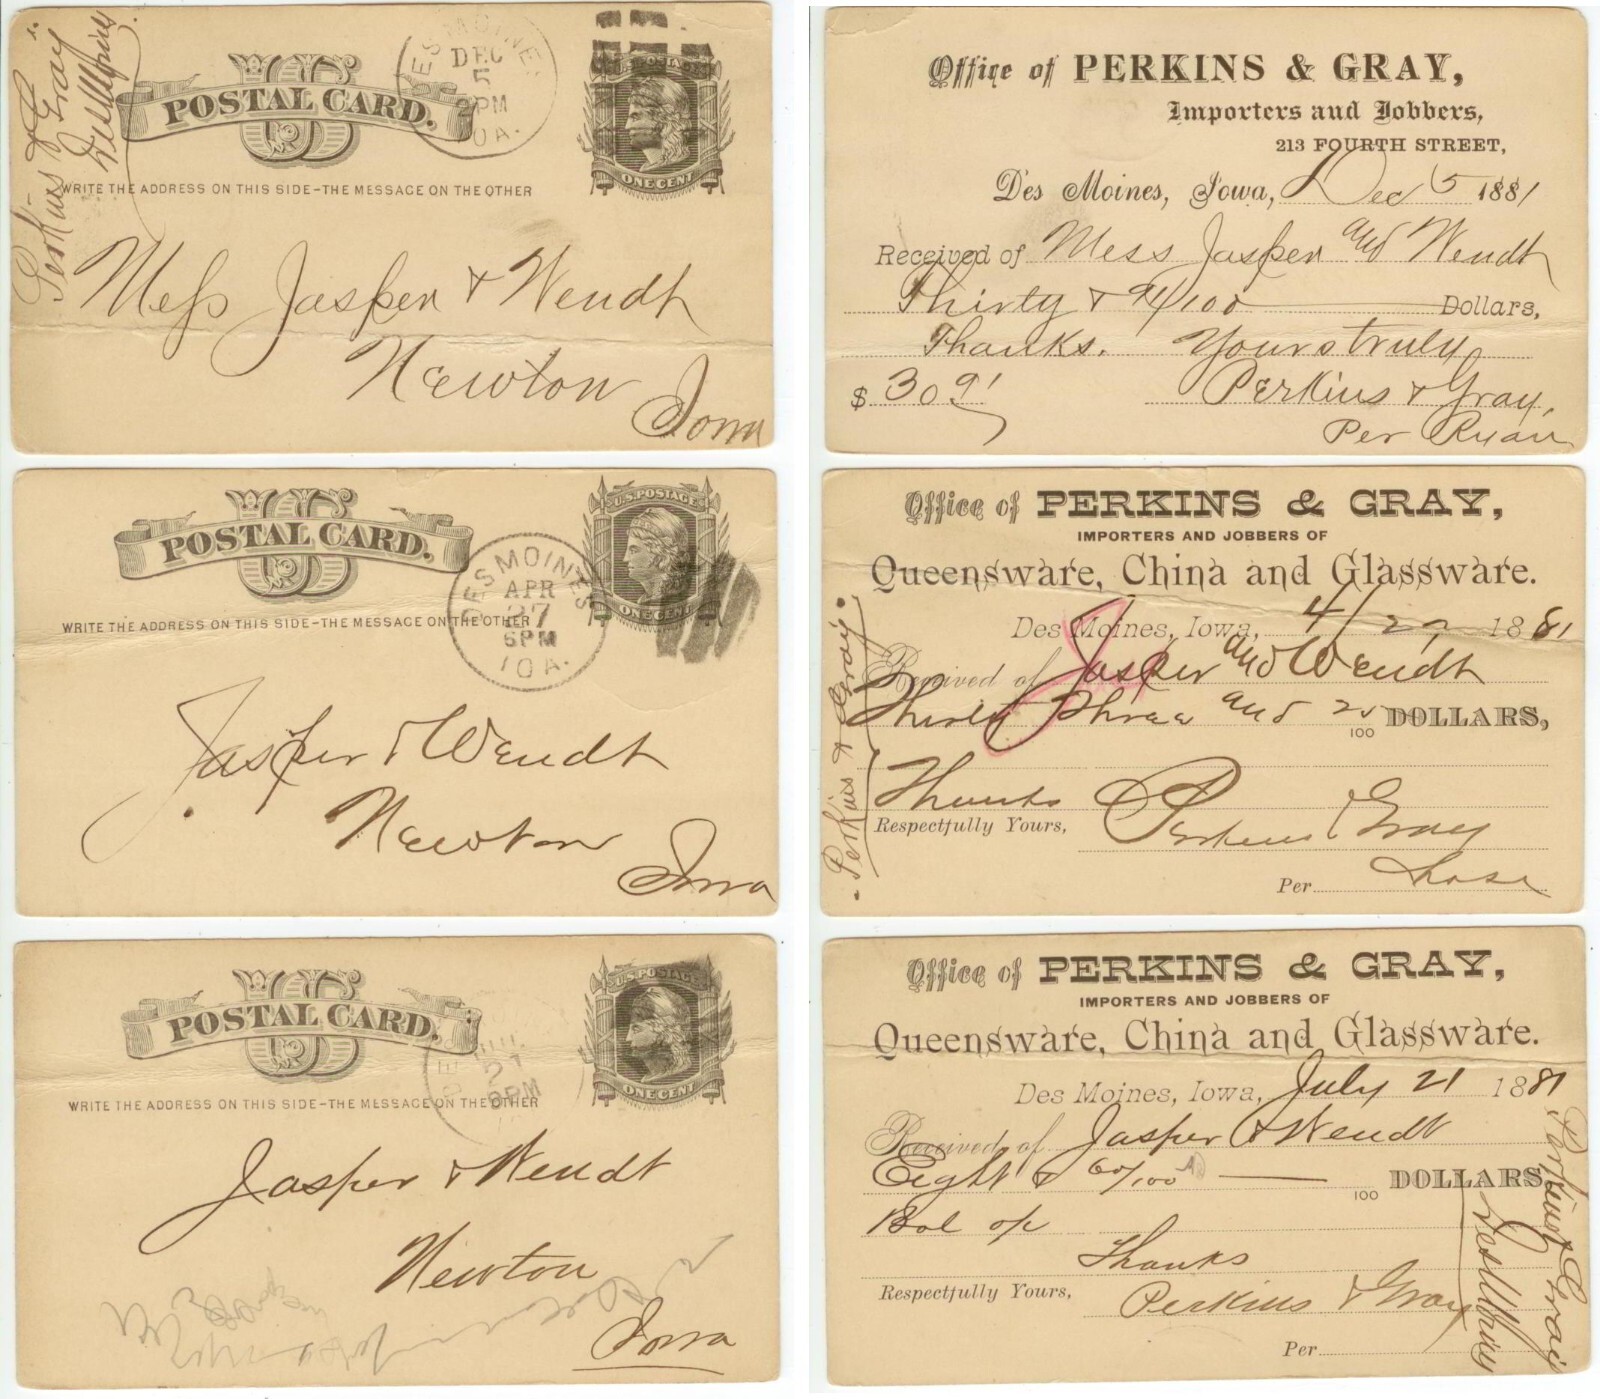 Perkins & Gray
POSTAL CARD.
DES MOINES
DEC
5
PM
IOA.
ONE CENT
WRITE THE ADDRESS ON THIS SIDE-THE MESSAGE ON THE OTHER
Mess Jasper & Wendt
Newton
Iowa
Office of PERKINS & GRAY,
Importers and Jobbers,
213 FOURTH STREET,
Des Moines, Iowa, Dec 5 1881
Received of Mess Jasper and Wendt
Thirty & 91/100 Dollars,
Thanks. Yours truly
$ 30 91 Perkins & Gray,
Per Ryan
U.S. POSTAGE
POSTAL CARD.
DES MOINES
APR
27
6PM
IOA.
ONE CENT
WRITE THE ADDRESS ON THIS SIDE-THE MESSAGE ON THE OTHER
Jasper & Wendt
Newton
Iowa
Office of PERKINS & GRAY,
IMPORTERS AND JOBBERS OF
Queensware, China and Glassware.
Des Moines, Iowa, 4/27 1881
Received of Jasper and Wendt
Thirty Three and 25/100 DOLLARS,
Thanks
Respectfully Yours, Perkins & Gray
Per
Perkins & Gray
U.S. POSTAGE
POSTAL CARD.
21
6PM
ONE CENT
WRITE THE ADDRESS ON THIS SIDE-THE MESSAGE ON THE OTHER
Jasper & Wendt
Newton
Iowa
Office of PERKINS & GRAY,
IMPORTERS AND JOBBERS OF
Queensware, China and Glassware.
Des Moines, Iowa, July 21 1881
Received of Jasper & Wendt
Eight & 60/100 100 DOLLARS,
Bal of
Thanks
Respectfully Yours, Perkins & Gray
Per
Perkins & Gray